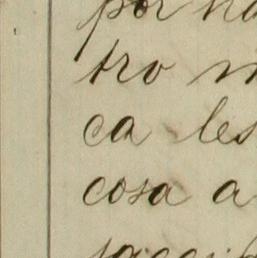 por na
tro n
ca les
cosa a